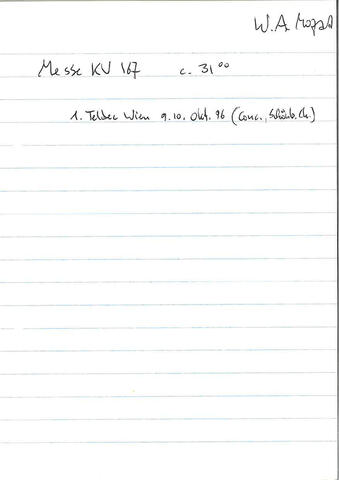 W. A. Mozart
Messe KV 167 c. 31⁰⁰
1. Teldec Wien 9.10. Okt. 96 (Conc., Schönb. Ch.)